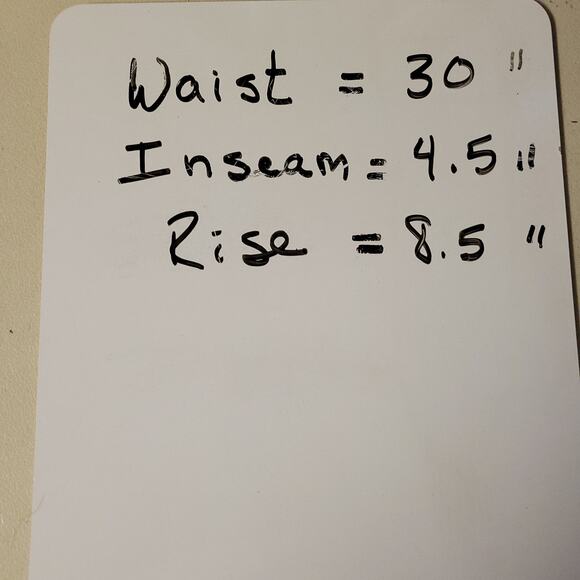 Waist = 30 "
Inseam = 4.5 "
Rise = 8.5 "